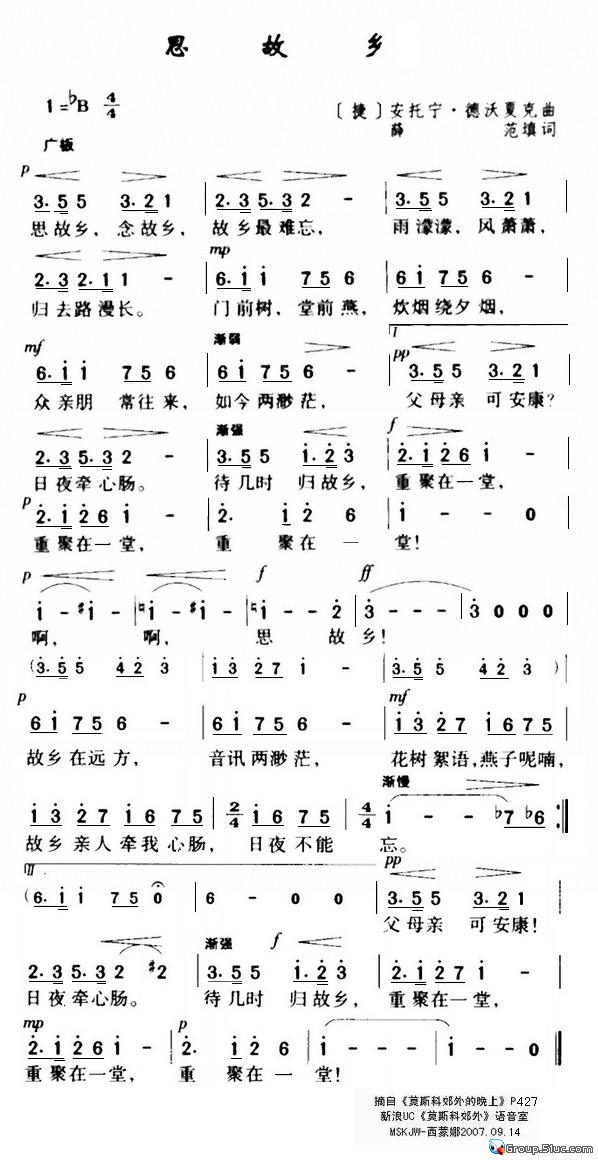 思 故 乡
1=♭B 4/4
〔捷〕安托宁·德沃夏克曲
薛 范填词
广板
p
3. 5 5 3. 2 1 | 2. 3 5. 3 2 - | 3. 5 5 3. 2 1 |
思故乡，念故乡，故乡最难忘，雨濛濛，风萧萧，
mp
2. 3 2. 1 1 - | 6. i i 7 5 6 | 6 i 7 5 6 - |
归去路漫长。门前树，堂前燕，炊烟绕夕烟，
mf 渐弱 pp I
6. i i 7 5 6 | 6 i 7 5 6 - | 3. 5 5 3. 2 1 |
众亲朋 常往来，如今两渺茫，父母亲 可安康？
渐强 f
2. 3 5. 3 2 - | 3. 5 5 i. 2 3 | 2. i 2 6 i - |
日夜牵心肠。待几时 归故乡，重聚在一堂，
p
2. i 2 6 i - | 2. i 2 6 | i - - 0 |
重聚在一堂，重 聚在 一 堂！
p f ff
i - #i - | ♮i - #i - | ♮i - - 2 | 3 - - - | 3 0 0 0 |
啊，啊，思 故 乡！
(3. 5 5 4 2 3 | i 3 2 7 i - | 3. 5 5 4 2 3) |
p mf
6 i 7 5 6 - | 6 i 7 5 6 - | i 3 2 7 i 6 7 5 |
故乡在远方，音讯两渺茫，花树絮语，燕子呢喃，
渐慢
i 3 2 7 i 6 7 5 | 2/4 i 6 7 5 | 4/4 i - - ♭7 ♭6 :‖
故乡亲人牵我心肠，日夜不能 忘。
II pp
(6. i i 7 5 0 | 6 - 0 0 | 3. 5 5 3. 2 1 |
父母亲 可安康！
渐强 f
2. 3 5. 3 2 #2 | 3. 5 5 i. 2 3 | 2. i 2 7 i - |
日夜牵心肠。待几时 归故乡，重聚在一堂，
mp p
2. i 2 6 i - | 2. i 2 6 | i - - - | i - - 0 ‖
重聚在一堂，重 聚在 一 堂！
摘自《莫斯科郊外的晚上》P427
新浪UC《莫斯科郊外》语音室
MSKJW-西蒙娜2007.09.14
Group.5iuc.com